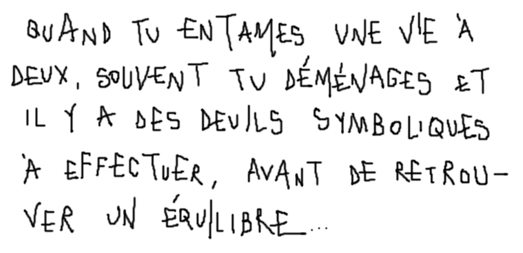 QUAND TU ENTAMES UNE VIE À
DEUX, SOUVENT TU DÉMÉNAGES ET
IL Y A DES DEUILS SYMBOLIQUES
À EFFECTUER, AVANT DE RETROU-
VER UN ÉQUILIBRE...